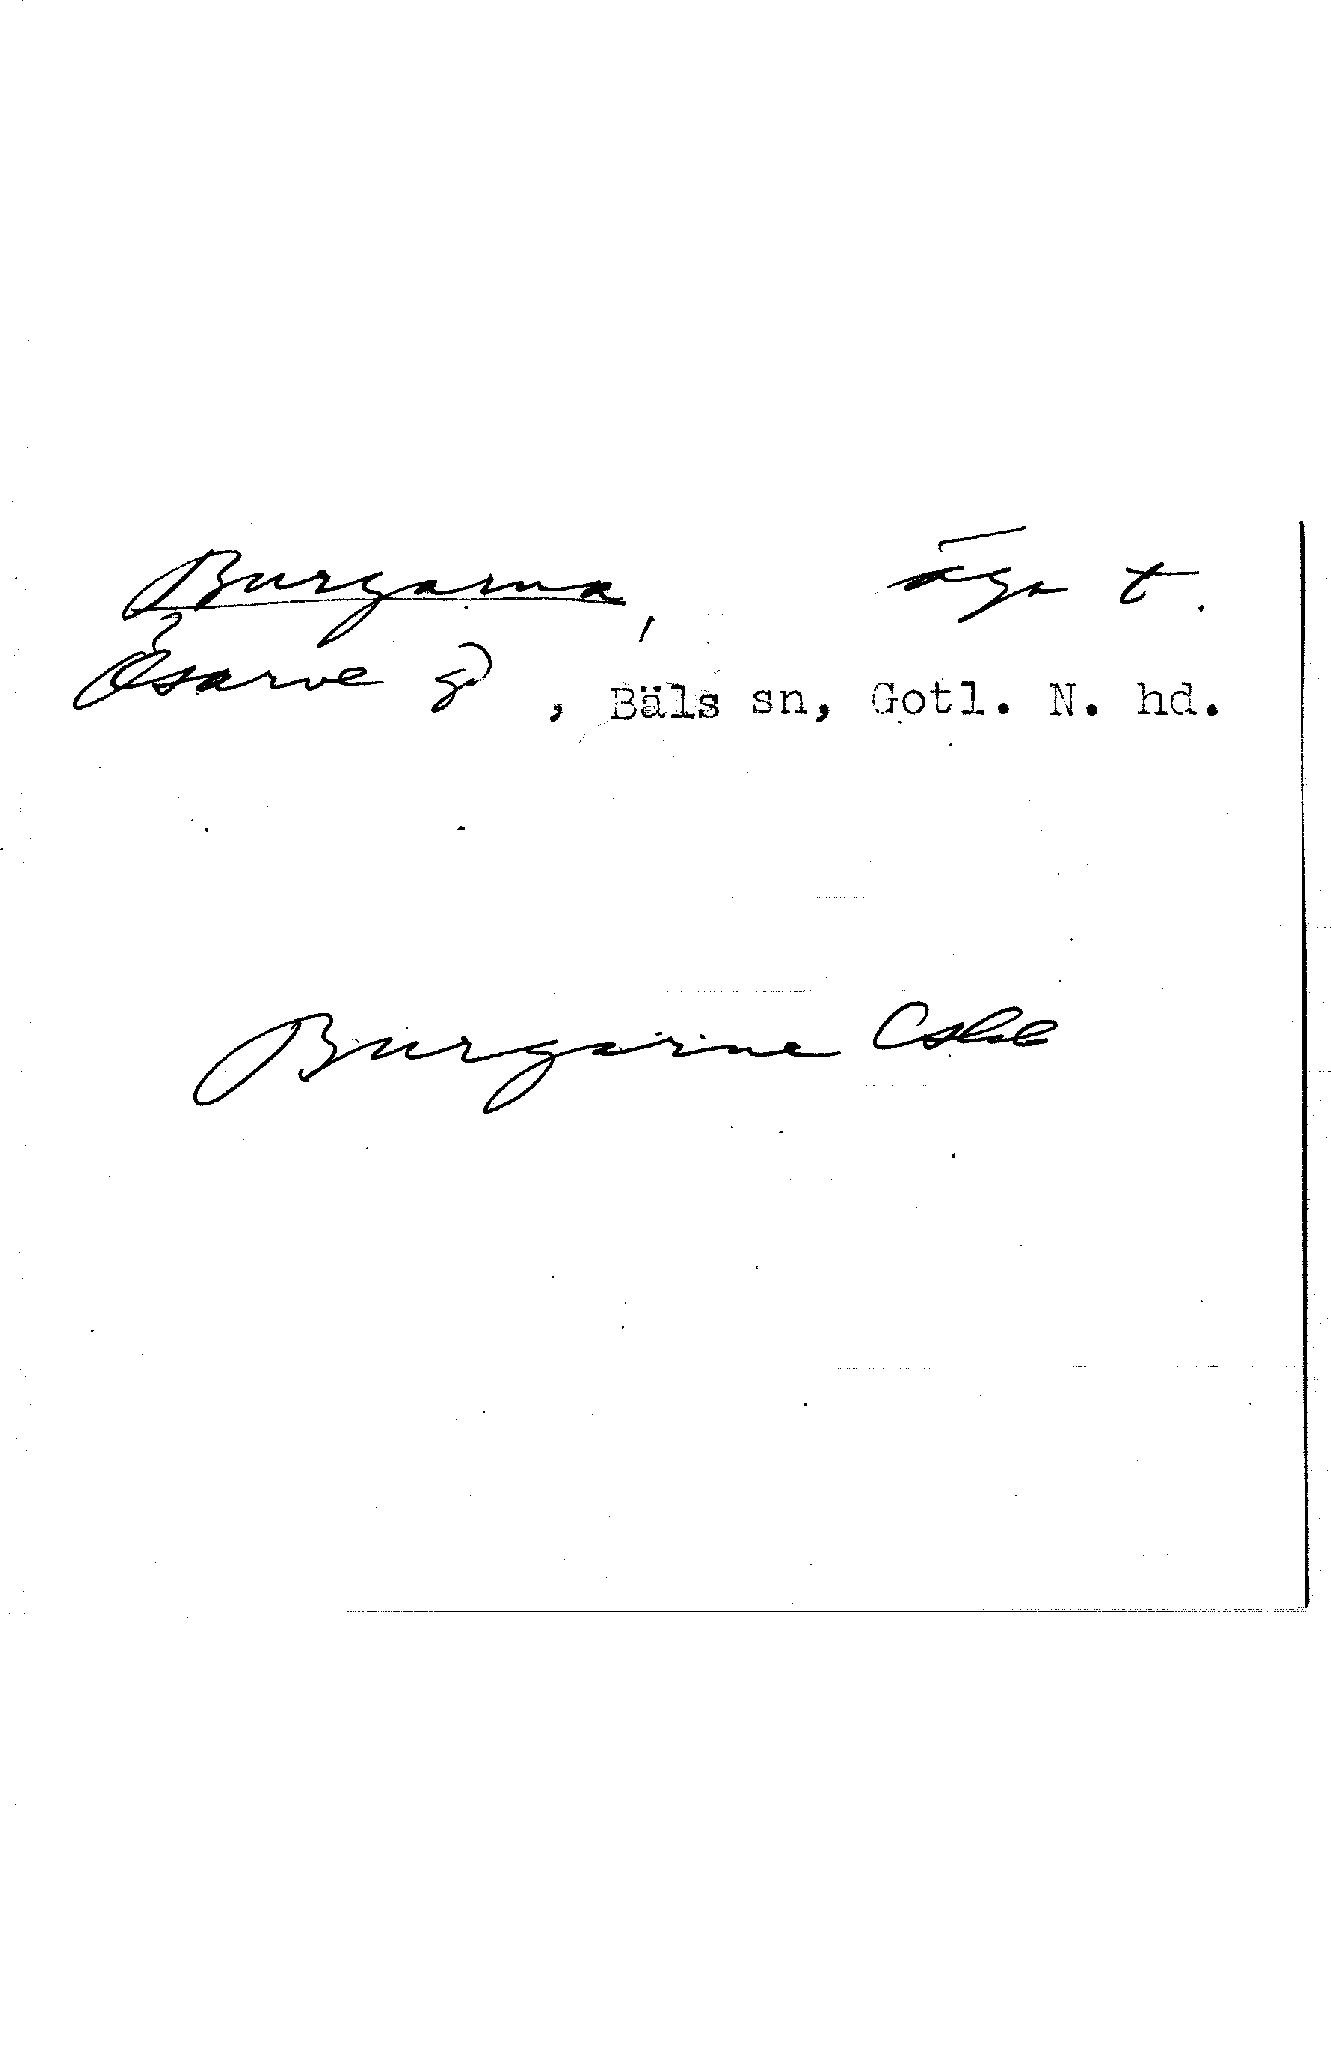 Burgarna, äga t.
Ösarve gd, Bäls sn, Gotl. N. hd.
Burgarne